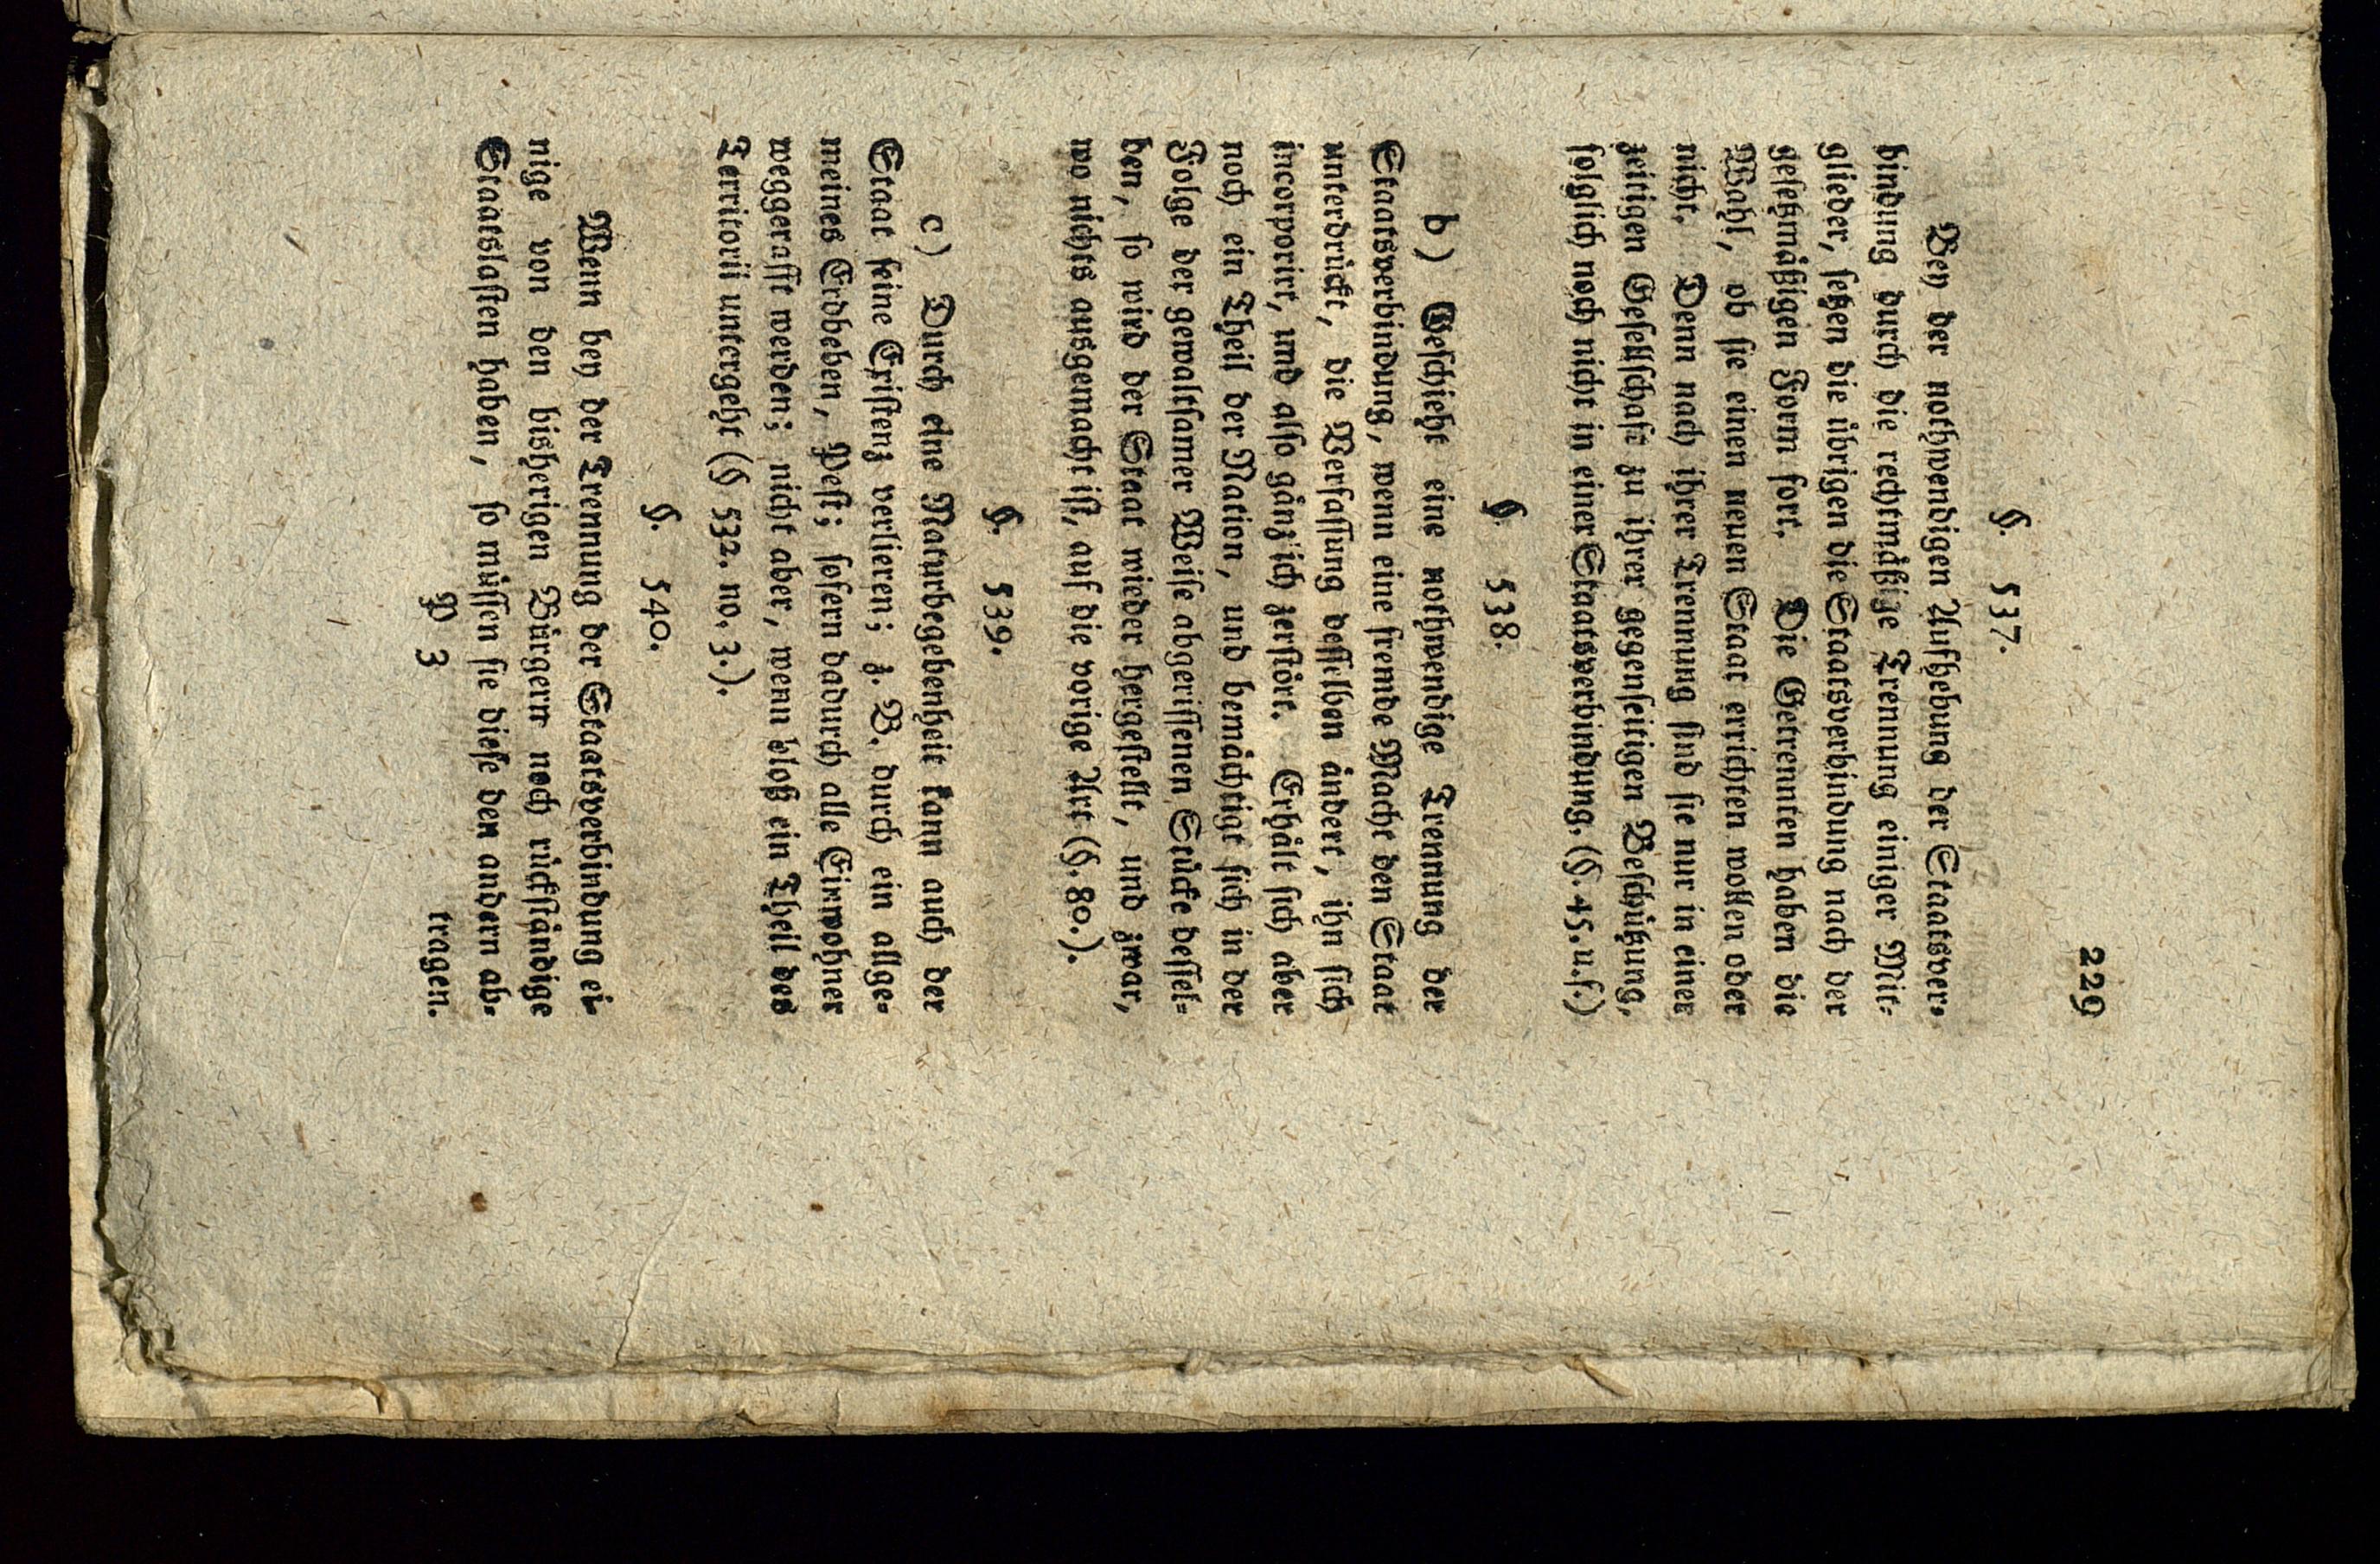 229
§. 537.
Bey der nothwendigen Aufhebung der Staatsver-
bindung durch die rechtmäßige Trennung einiger Mit-
glieder, setzen die übrigen die Staatsverbindung nach der
gesetzmäßigen Form fort. Die Getrennten haben die
Wahl, ob sie einen neuen Staat errichten wollen oder
nicht. Denn nach ihrer Trennung sind sie nur in einer
zeitigen Gesellschaft zu ihrer gegenseitigen Beschützung,
folglich noch nicht in einer Staatsverbindung. (§. 45. u. f.)
§. 538.
b) Geschieht eine nothwendige Trennung der
Staatsverbindung, wenn eine fremde Macht den Staat
unterdrückt, die Verfassung desselben ändert, ihn sich
incorporirt, und also gänzlich zerstört. Erhält sich aber
noch ein Theil der Nation, und bemächtigt sich in der
Folge der gewaltsamer Weise abgerissenen Stücke dessel-
ben, so wird der Staat wieder hergestellt, und zwar,
wo nichts ausgemacht ist, auf die vorige Art (§. 80.).
§. 539.
c) Durch eine Naturbegebenheit kann auch der
Staat seine Existenz verlieren; z. B. durch ein allge-
meines Erdbeben, Pest; sofern dadurch alle Einwohner
weggerafft werden; nicht aber, wenn bloß ein Theil des
Territorii untergeht (§ 532. no. 3.).
§. 540.
Wenn bey der Trennung der Staatsverbindung ei-
nige von den bisherigen Bürgern noch rückständige
Staatslasten haben, so müssen sie diese den andern ab-
P 3
tragen.